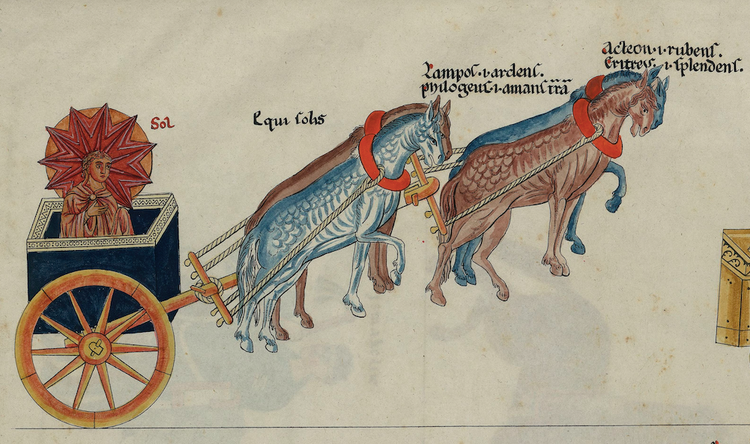 Sol
Equi solis
Lampos .i. ardens.
phylogeus .i. amans t̄rā
Acteon .i. rubens.
Eritreus .i. splendens.